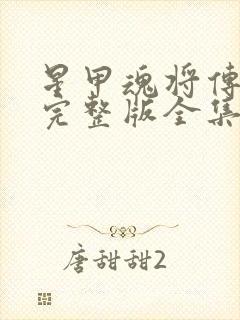 星甲魂将傳
完整版全集
唐甜甜2